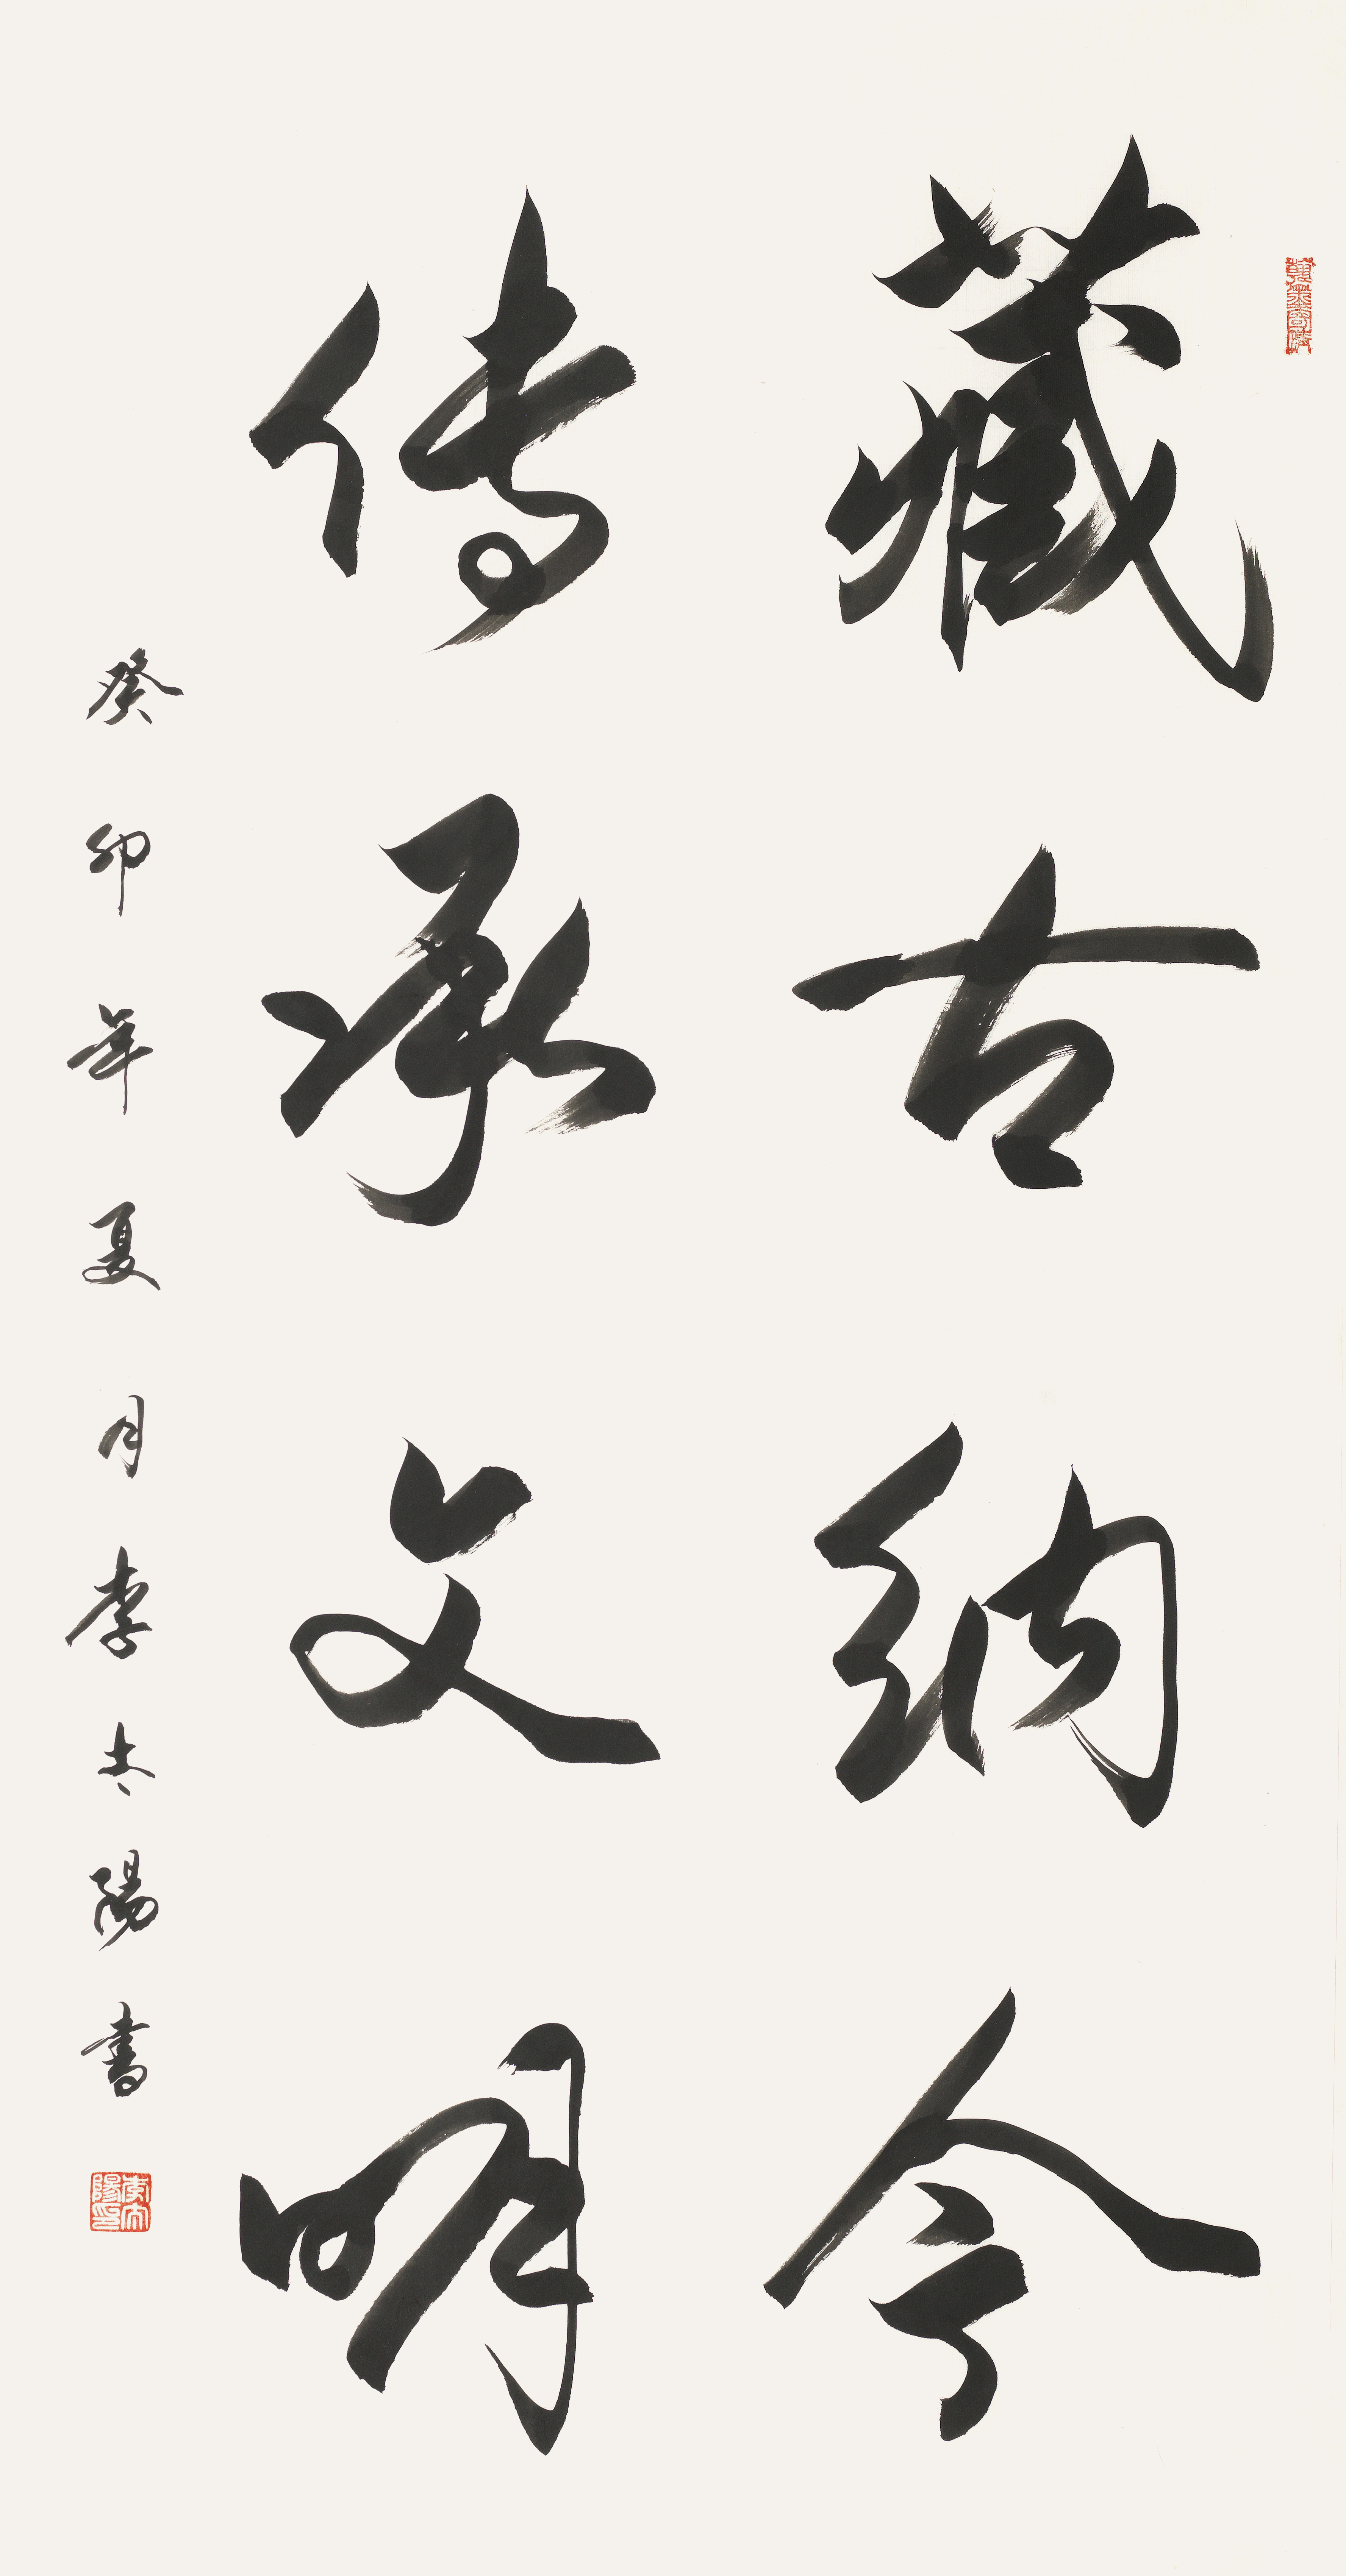 藏古纳今
传承文明
癸卯年夏月李太陽书